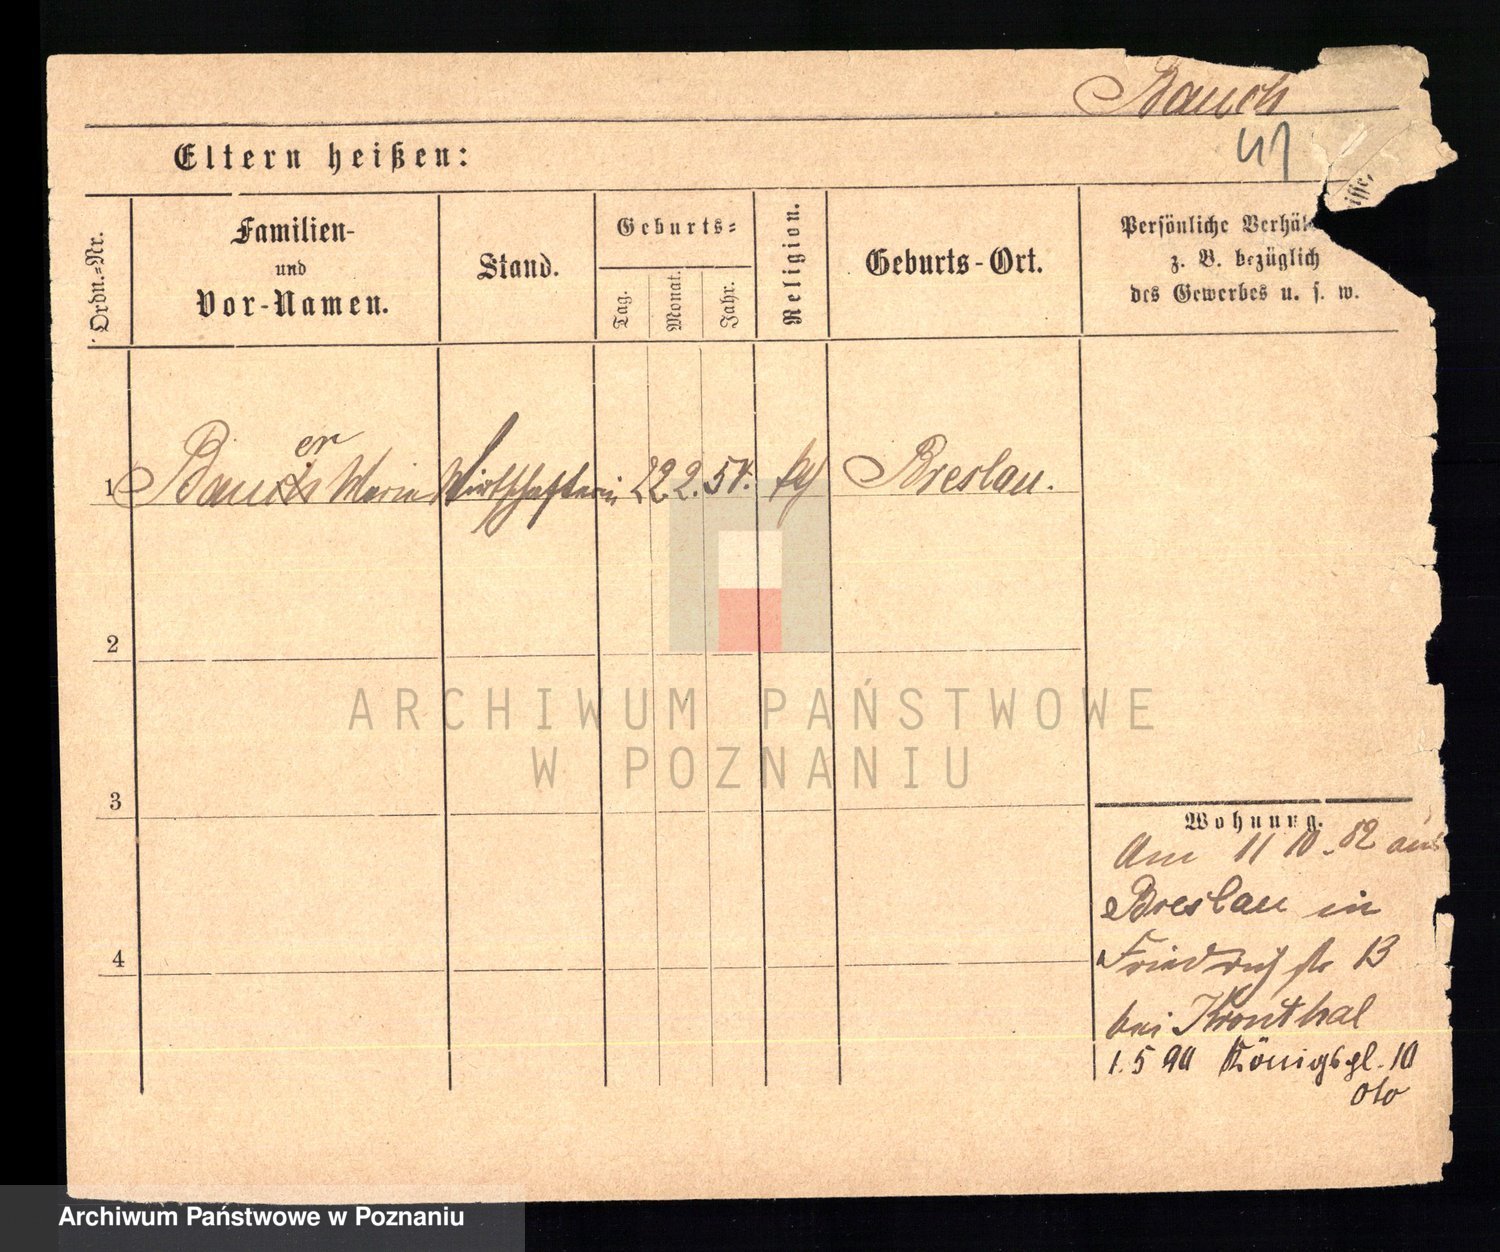 Bauch
41
Eltern heißen:
Ordn.-Nr.
Familien-
und
Vor-Namen.
Stand.
Geburts-
Tag.
Monat.
Jahr.
Religion.
Geburts-Ort.
Persönliche Verhäl
z. B. bezüglich
des Gewerbes u. s. w.
er
1 Bauch Marie Wirtschafterin 22. 2. 54. Breslau.
2
3
4
Wohnung.
Am 11 10. 82 aus
Breslau in
Friedrichstr 13
bei Kronthal
1. 5 90 Königspl. 10
ARCHIWUM PAŃSTWOWE
W POZNANIU
Archiwum Państwowe w Poznaniu